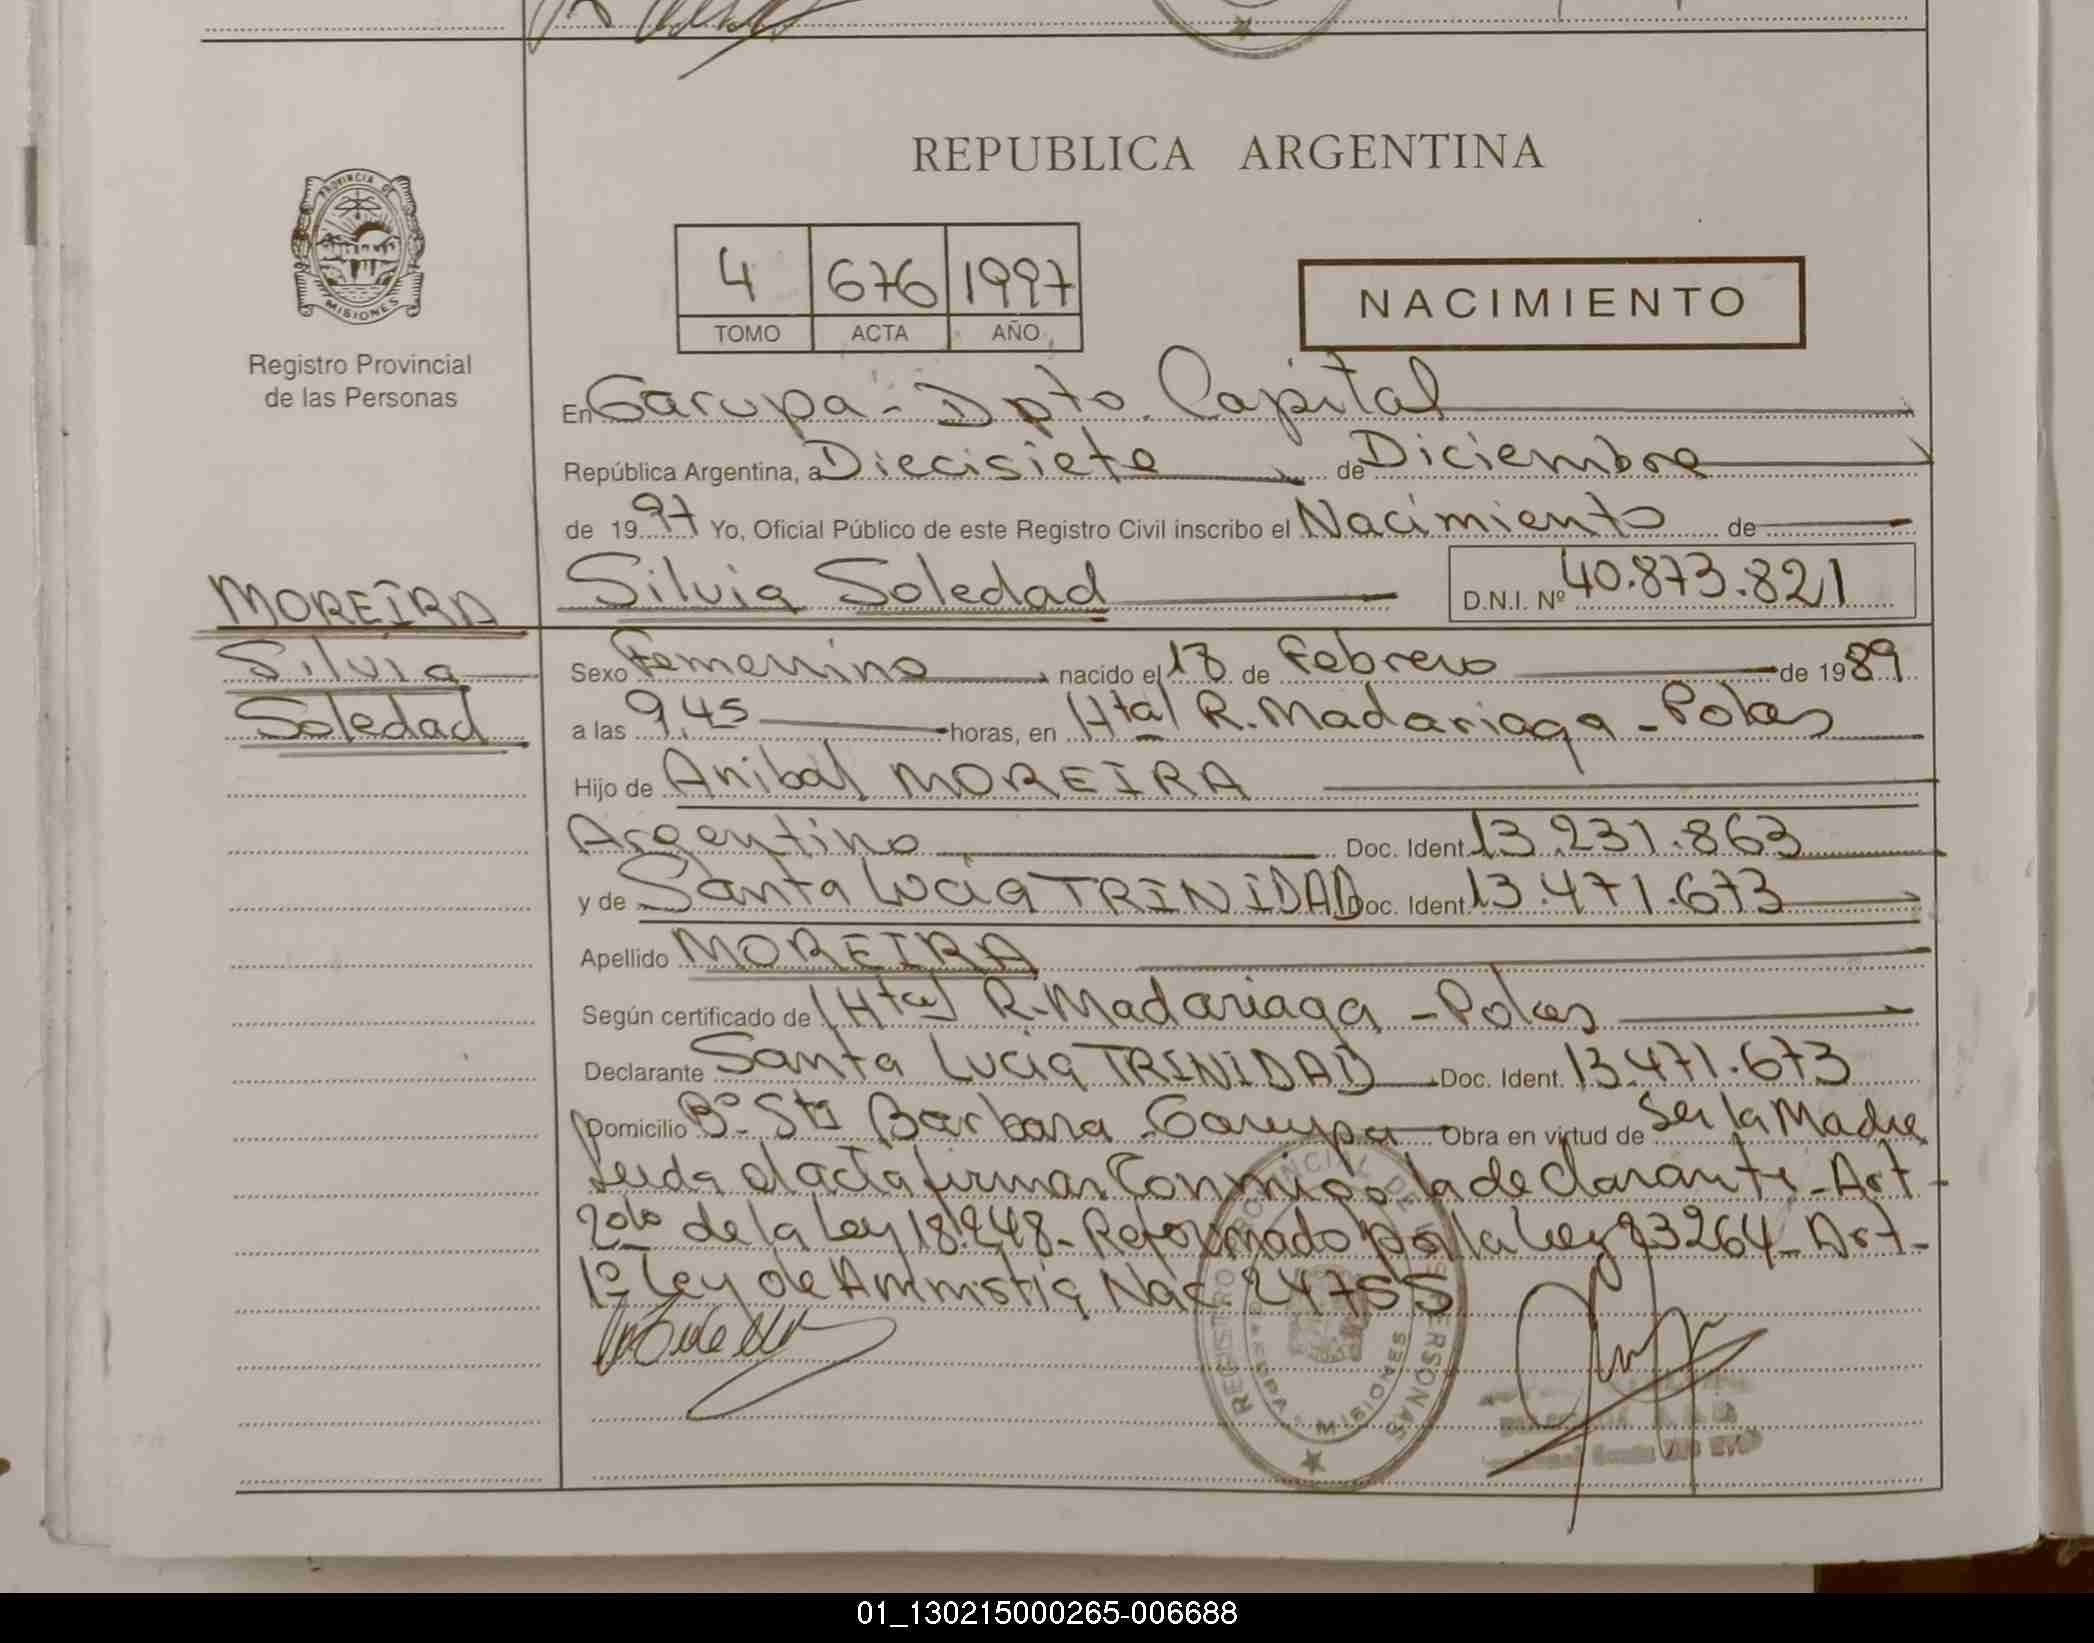 REPUBLICA ARGENTINA
PROVINCIA DE
MISIONES
Registro Provincial
de las Personas
4 676 1997
TOMO ACTA AÑO
NACIMIENTO
En Garupa - Dpto. Capital
República Argentina, a Diecisiete de Diciembre
de 19 97 Yo, Oficial Público de este Registro Civil inscribo el Nacimiento de
MOREIRA
Silvia
Soledad
Silvia Soledad D.N.I. Nº 40.873.821
Sexo Femenino nacido el 18 de Febrero de 19 89
a las 9,45 horas, en Htal R. Madariaga - Pdas
Hijo de Anibal MOREIRA
Argentino Doc. Ident. 13.231.863
y de Santa Lucia TRINIDAD Doc. Ident. 13.471.673
Apellido MOREIRA
Según certificado de Htal R. Madariaga - Pdas
Declarante Santa Lucia TRINIDAD Doc. Ident. 13.471.673
Domicilio Bº Sta Barbara Garupa Obra en virtud de Ser la Madre
Leida el acta firman Conmigo la declarante - Art -
2do de la Ley 18.248 - Reformado por la Ley 23264 - Art -
1º Ley de Amnistia Nac. 24755
REGISTRO PROVINCIAL DE LAS PERSONAS
MISIONES
01_130215000265-006688